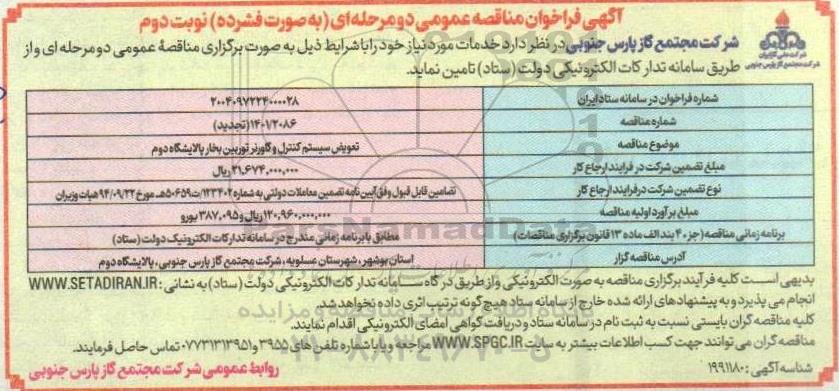 آگهی فراخوان مناقصه عمومی دو مرحله‌ای (به صورت فشرده) نوبت دوم
شرکت مجتمع گاز پارس جنوبی در نظر دارد خدمات مورد نیاز خود را با شرایط ذیل به صورت برگزاری مناقصهٔ عمومی دو مرحله ای و از
طریق سامانه تدارکات الکترونیکی دولت (ستاد) تامین نماید.
شرکت ملی گاز ایران
شرکت مجتمع گاز پارس جنوبی
شماره فراخوان در سامانه ستاد ایران ۲۰۰۴۰۹۷۲۲۴۰۰۰۰۲۸
شماره مناقصه ۱۴۰۱/۲۰۸۶ (تجدید)
موضوع مناقصه تعویض سیستم کنترل و گاورنر توربین بخار پالایشگاه دوم
مبلغ تضمین شرکت در فرایند ارجاع کار ۳۱,۶۷۴,۰۰۰,۰۰۰ ریال
نوع تضمین شرکت در فرایند ارجاع کار تضامین قابل قبول وفق آیین نامه تضمین معاملات دولتی به شماره ۱۲۳۴۰۲/ت۵۰۶۵۹هـ مورخ ۹۴/۰۹/۲۲ هیات وزیران
مبلغ برآورد اولیه مناقصه ۱۲۰,۹۶۰,۰۰۰,۰۰۰ ریال و ۳۸۷,۰۹۵ یورو
برنامه زمانی مناقصه (جزء ۴ بند الف ماده ۱۳ قانون برگزاری مناقصات) مطابق با برنامه زمانی مندرج در سامانه تدارکات الکترونیک دولت (ستاد)
آدرس مناقصه گزار استان بوشهر، شهرستان عسلویه، شرکت مجتمع گاز پارس جنوبی، پالایشگاه دوم
بدیهی است کلیه فرآیند برگزاری مناقصه به صورت الکترونیکی و از طریق درگاه سامانه تدارکات الکترونیکی دولت (ستاد) به نشانی : WWW.SETADIRAN.IR
انجام می پذیرد و به پیشنهادهای ارائه شده خارج از سامانه ستاد هیچ گونه ترتیب اثری داده نخواهد شد.
کلیه مناقصه گران بایستی نسبت به ثبت نام در سامانه ستاد و دریافت گواهی امضای الکترونیکی اقدام نمایند.
مناقصه گران می توانند جهت کسب اطلاعات بیشتر به سایت WWW.SPGC.IR مراجعه و یا با شماره تلفن های ۳۹۵۵ و ۰۷۷۳۱۳۱۳۹۵۱ تماس حاصل فرمایند.
شناسه آگهی : ۱۹۹۱۱۸۰ روابط عمومی شرکت مجتمع گاز پارس جنوبی
ParsNamadData
پایگاه اطلاع رسانی مناقصه و مزایده
۰۲۱-۸۸۳۴۹۶۷۰-۵